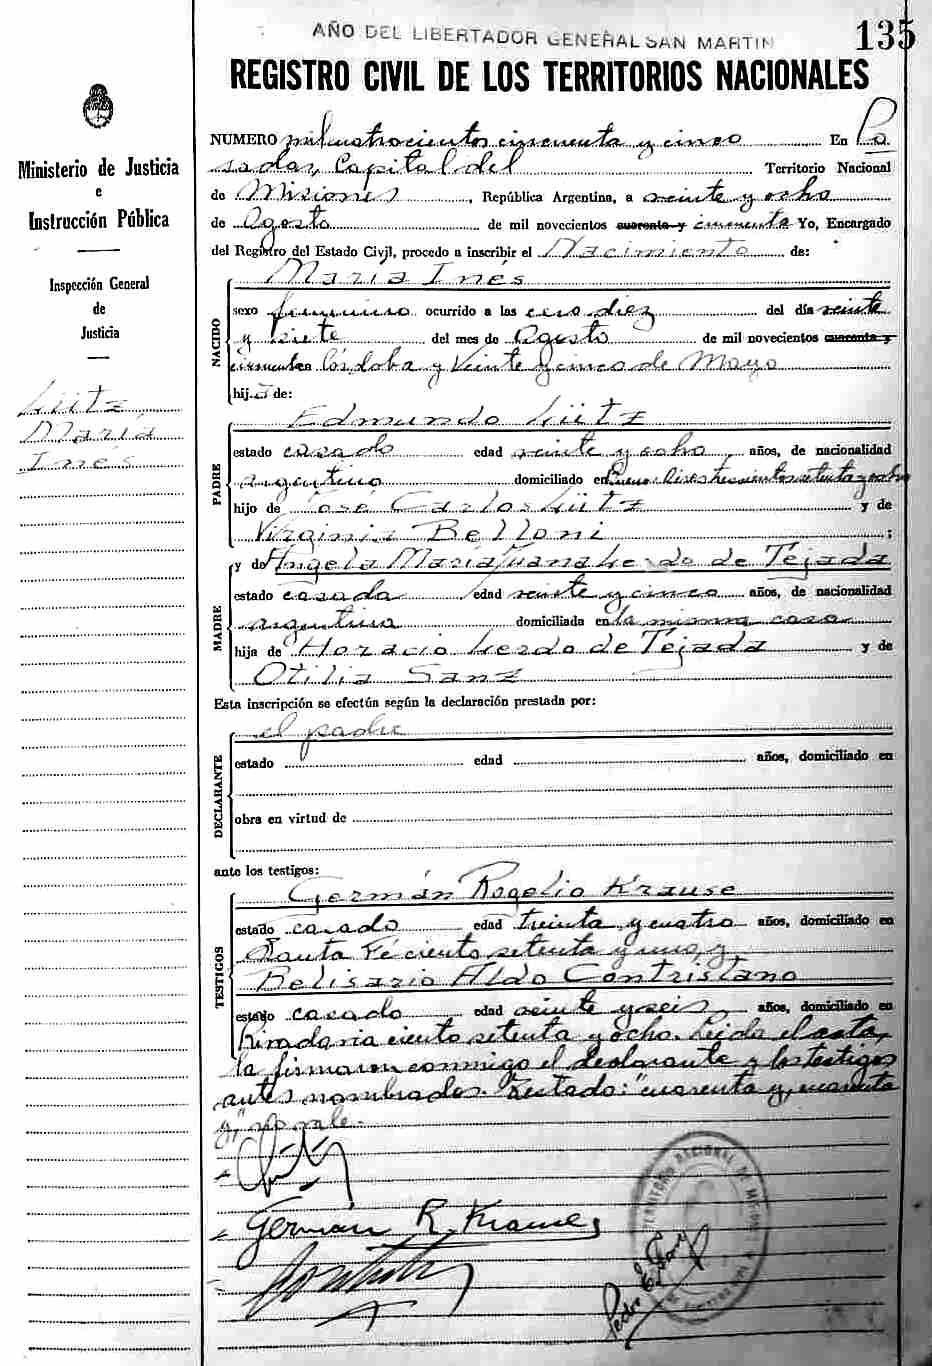 AÑO DEL LIBERTADOR GENERAL SAN MARTIN
135
REGISTRO CIVIL DE LOS TERRITORIOS NACIONALES
Ministerio de Justicia
e
Instrucción Pública
Inspección General
de
Justicia
Lütz
María
Inés
NUMERO mil cuatrocientos cincuenta y cinco En Po
sadas, Capital del Territorio Nacional
de Misiones, República Argentina, a veinte y ocho
de Agosto de mil novecientos cuarenta y cincuenta Yo, Encargado
del Registro del Estado Civil, procedo a inscribir el Nacimiento de:
NACIDO
María Inés
sexo femenino ocurrido a las cero diez del día veinte
y siete del mes de Agosto de mil novecientos cuarenta y
cincuenta en Córdoba y Veinte y cinco de Mayo
hija de:
PADRE
Edmundo Lütz
estado casado edad veinte y ocho, años, de nacionalidad
argentino domiciliado en Buenos Aires trescientos setenta y ocho
hijo de José Carlos Lütz y de
Virginia Belloni;
MADRE
y de Angela María Juana Lerdo de Tejada
estado casada edad veinte y cinco años, de nacionalidad
argentina domiciliada en la misma casa
hija de Horacio Lerdo de Tejada y de
Otilia Sanz
Esta inscripción se efectúa según la declaración prestada por:
DECLARANTE
el padre
estado edad años, domiciliado en
obra en virtud de
ante los testigos:
TESTIGOS
Germán Rogelio Krause
estado casado edad treinta y cuatro años, domiciliado en
Santa Fé ciento setenta y uno y
Belisario Aldo Contristano
estado casado edad veinte y seis, años, domiciliado en
Rivadavia ciento setenta y ocho. Leída el acta,
la firmaron conmigo el declarante y los testigos
antes nombrados. Testado: "cuarenta y, cuarenta
y," no vale.
Germán R. Krause
TERRITORIO NACIONAL DE MISIONES